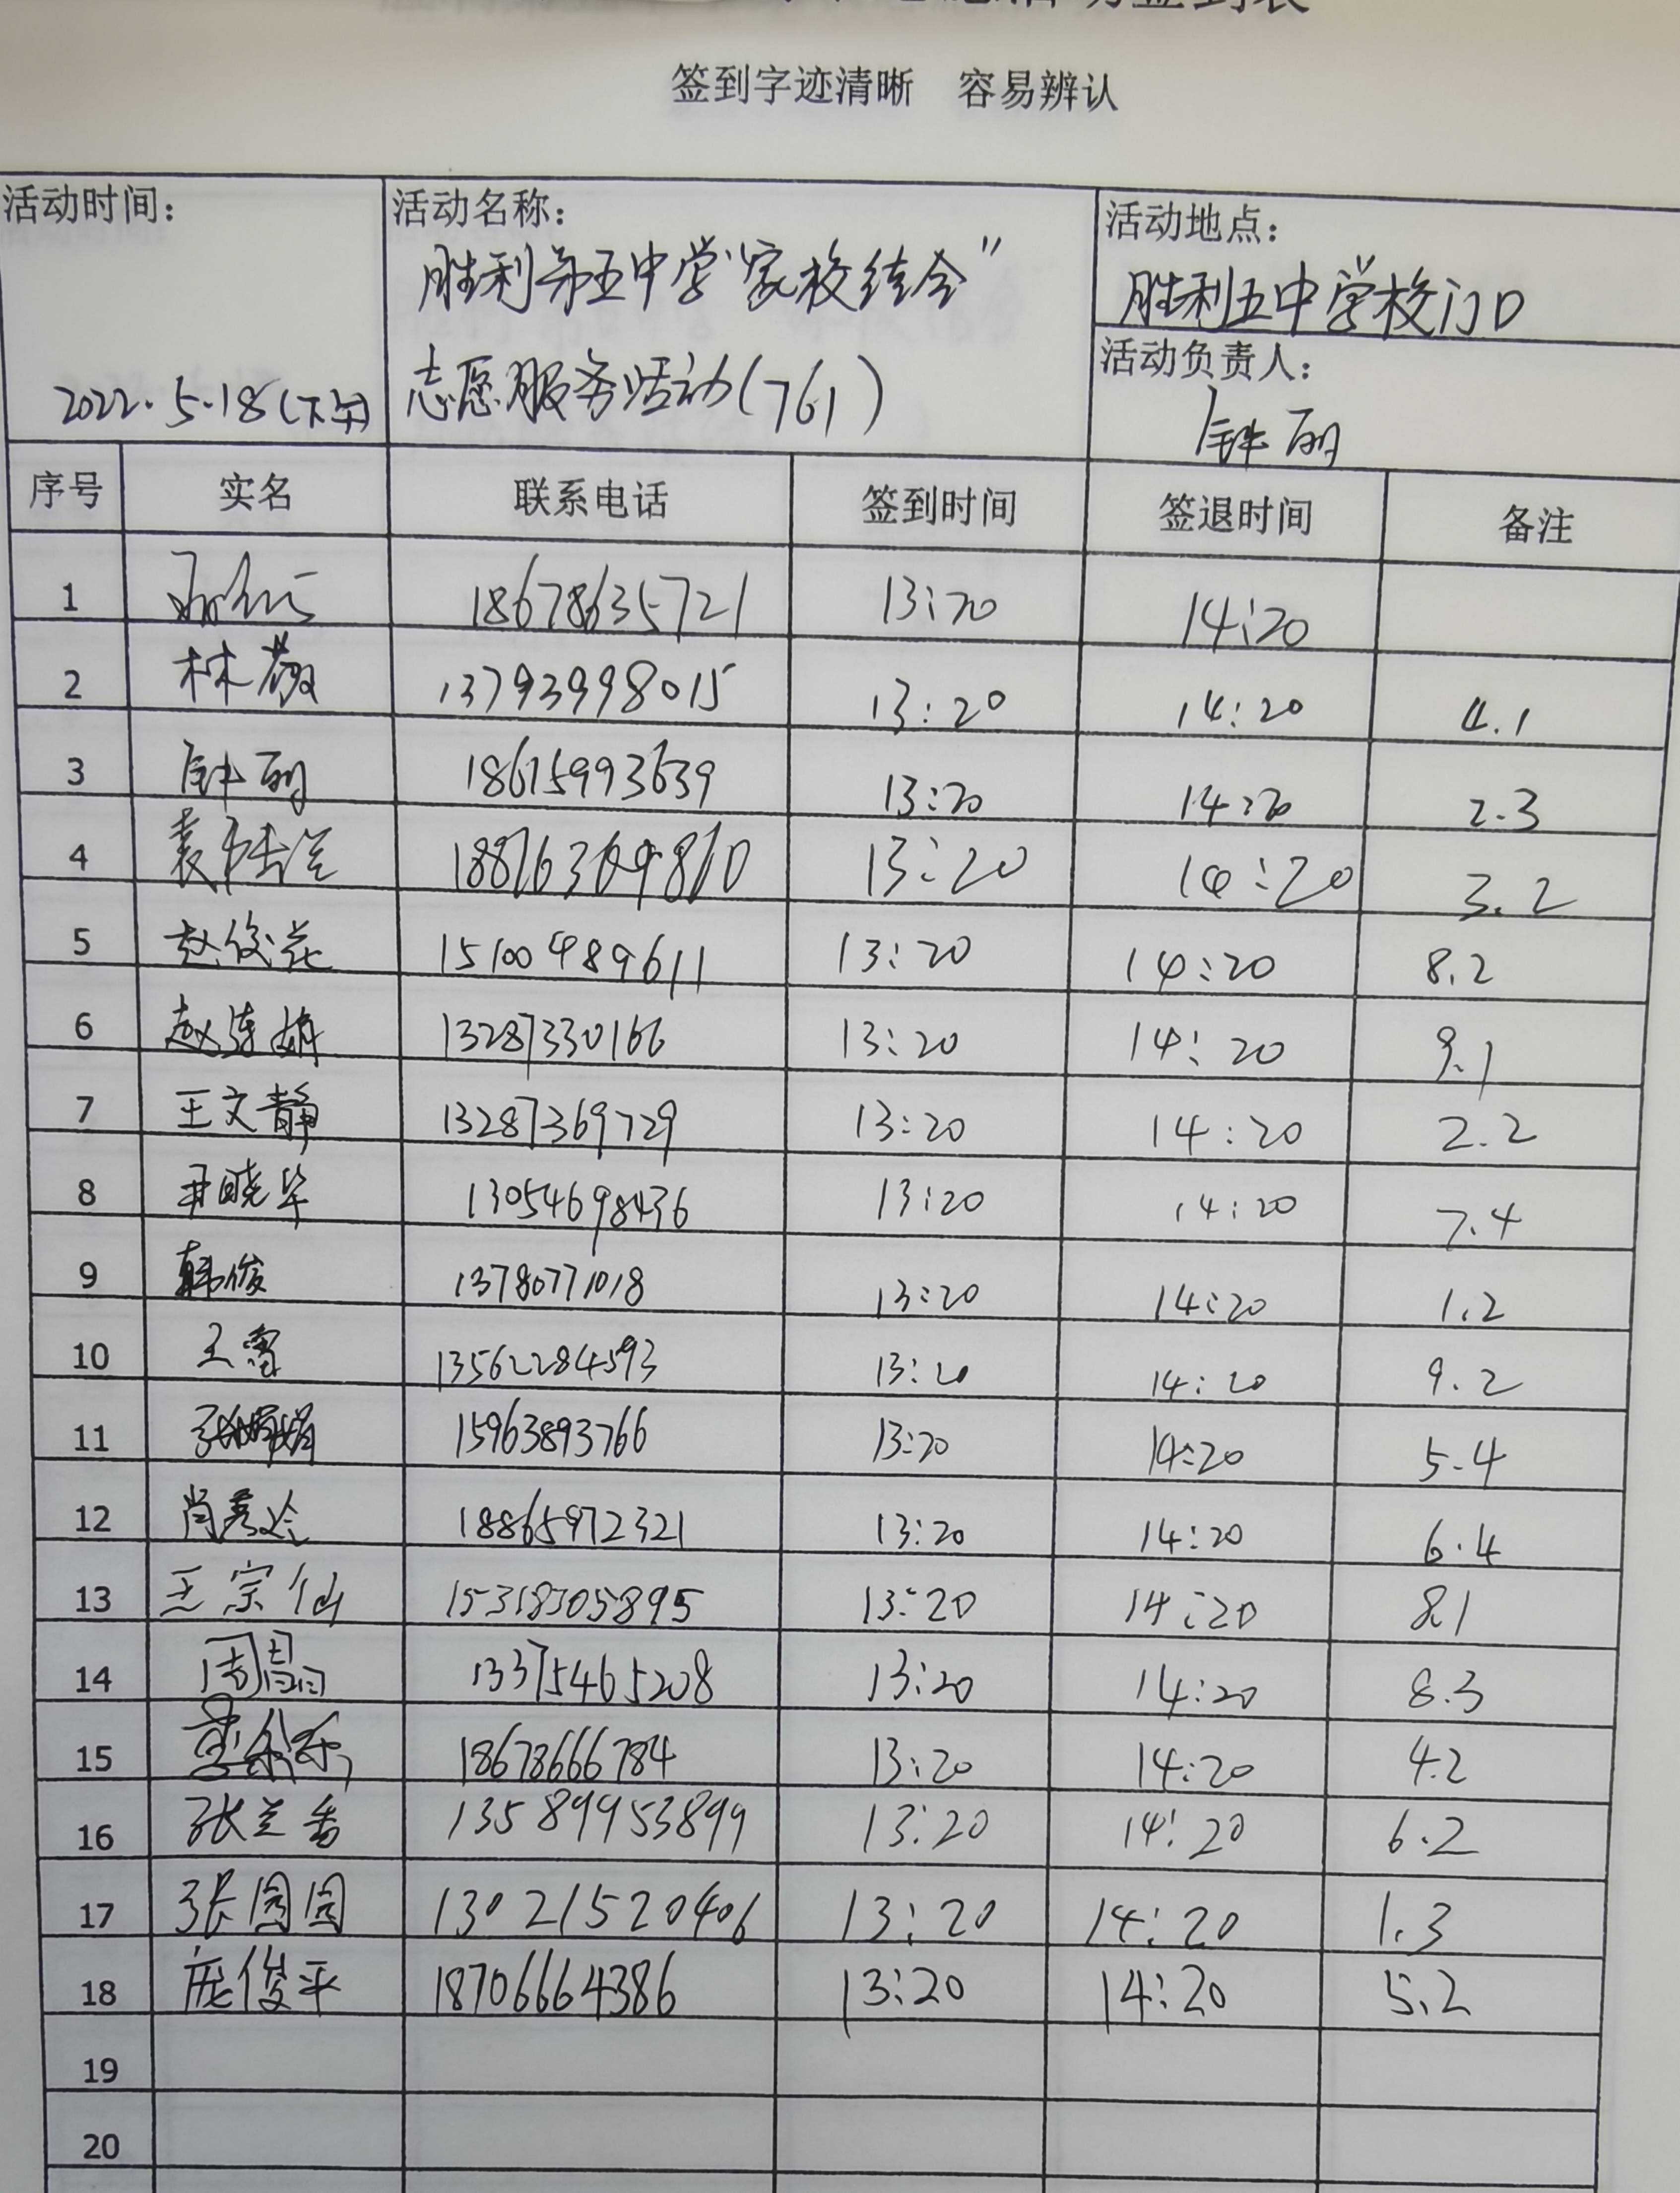 签到字迹清晰 容易辨认
活动时间:
2022.5.18(下午)
活动名称:
胜利第五中学"家校结合"
志愿服务活动(761)
活动地点:
胜利五中学校门口
活动负责人:
钟丽
序号 实名 联系电话 签到时间 签退时间 备注
1 18678635721 13:20 14:20
2 林薇 13793998015 13:20 14:20 4.1
3 钟丽 18615993639 13:20 14:20 2.3
4 袁 13:20 14:20 3.2
5 赵俊花 15100489611 13:20 14:20 8.2
6 赵 娟 13287330166 13:20 14:20 9.1
7 王文静 13287369729 13:20 14:20 2.2
8 尹晓华 13054698436 13:20 14:20 7.4
9 韩俊 13780771018 13:20 14:20 1.2
10 王雪 13562284593 13:20 14:20 9.2
11 张娟娟 15963893766 13:20 14:20 5.4
12 肖彦玲 18865972321 13:20 14:20 6.4
13 王宗仙 153183305895 13:20 14:20 8.1
14 周晶 13375465208 13:20 14:20 8.3
15 18678666784 13:20 14:20 4.2
16 张兰香 13589953899 13:20 14:20 6.2
17 张园园 13021520406 13:20 14:20 1.3
18 庞俊平 18706664386 13:20 14:20 5.2
19
20